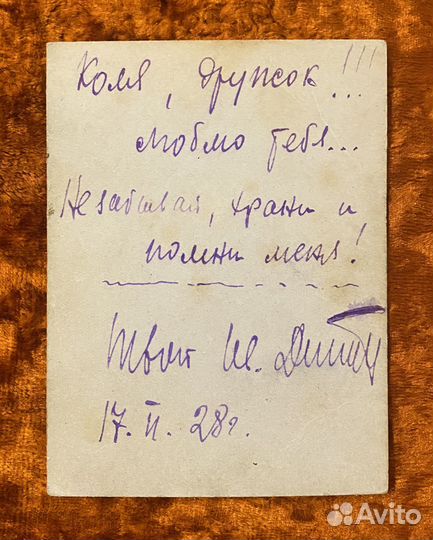 Коля, дружок!!!
люблю тебя...
Не забывай, храни и
помни меня!
Твой
17.II.28г.
Avito